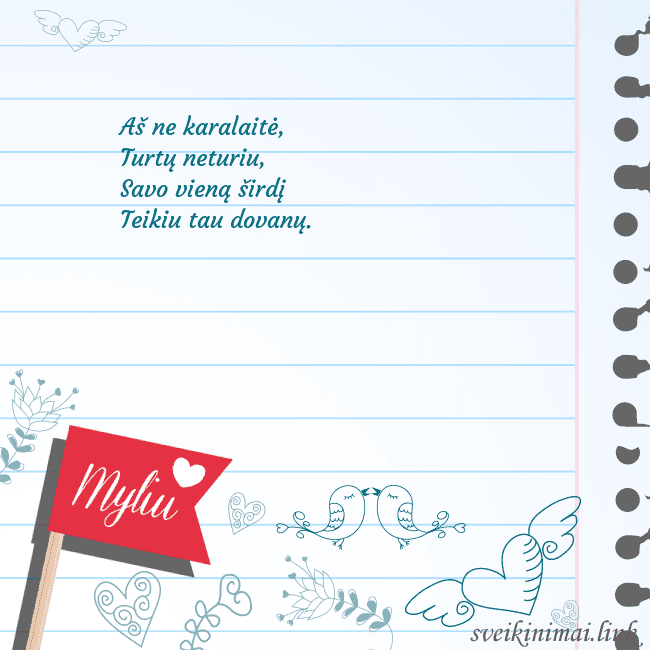 Aš ne karalaitė,
Turtų neturiu,
Savo vieną širdį
Teikiu tau dovanų.
Myliu
sveikinimai.link